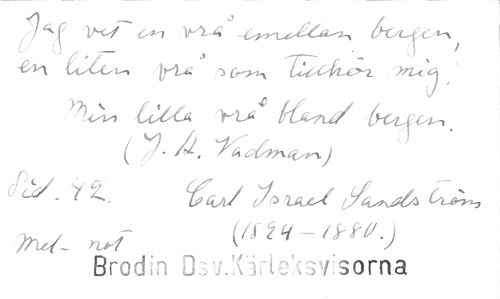 Jag vet en vrå emellan bergen,
en liten vrå som tillhör mig.
Min lilla vrå bland bergen.
(J. A. Wadman)
Sid. 42. Carl Israel Sandström
(1824-1880.)
Mel- not
Brodin Dsv.Kärleksvisorna